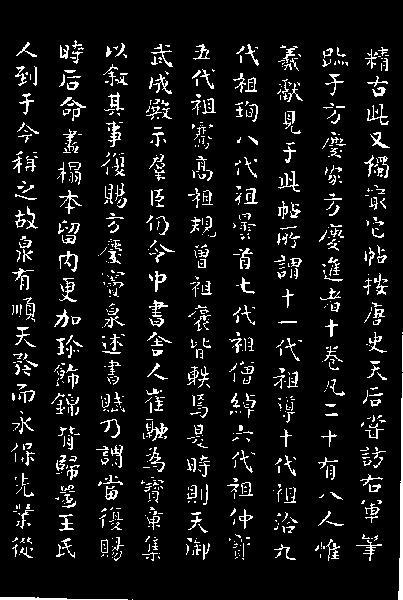 精古此又獨最它帖按唐史天后嘗訪右軍筆
跡于方慶家方慶進者十卷凡二十有八人惟
羲獻見于此帖所謂十一代祖導十代祖洽九
代祖珣八代祖曇首七代祖僧綽六代祖仲寶
五代祖騫高祖規曾祖褒皆軼焉是時則天御
武成殿示羣臣仍令中書舍人崔融為寶章集
以敘其事復賜方慶竇泉述書賦乃謂當復賜
時后命盡榻本留內更加珍飾錦背歸焉王氏
人到于今稱之故泉有順天而永保先業從